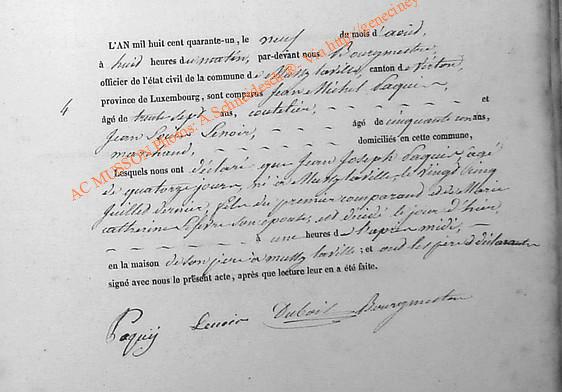 L'AN mil huit cent quarante-un, le neuf du mois d'août,
à huit heures du matin, par-devant nous Bourgmestre
officier de l'état civil de la commune de Mussy laville, canton de Virton,
province de Luxembourg, sont comparus Jean Michel Paquis,
âgé de trente sept ans, coutelier, et
4
Jean Louis Lenoir, âgé de cinquante ans,
marchand, domiciliés en cette commune,
Lesquels nous ont déclaré que Jean Joseph Paquis, agé
de quatorze jours, né à Mussy laville le vingt cinq
juillet dernier, fils du premier comparant et de Marie
catherine son épouse, est décédé le jour d'hier,
à une heures de l'après midi,
en la maison de son père à mussy laville; et ont les père et déclarants
signé avec nous le présent acte, après que lecture leur en a été faite.
Paquis Lenoir Dubois Bourgmestre
AC MUSSON Photos: A.Schneidesch ©. via http://geneciney